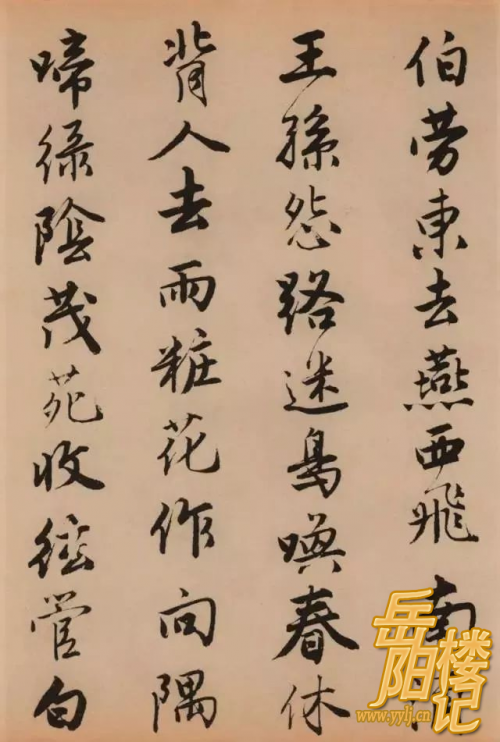 伯劳東去燕西飛南
王孫怨路迷鳥喚春休
背人去雨粧花作向隅
啼緑陰茂苑收絃管白
岳阳楼记
www.yylj.cn